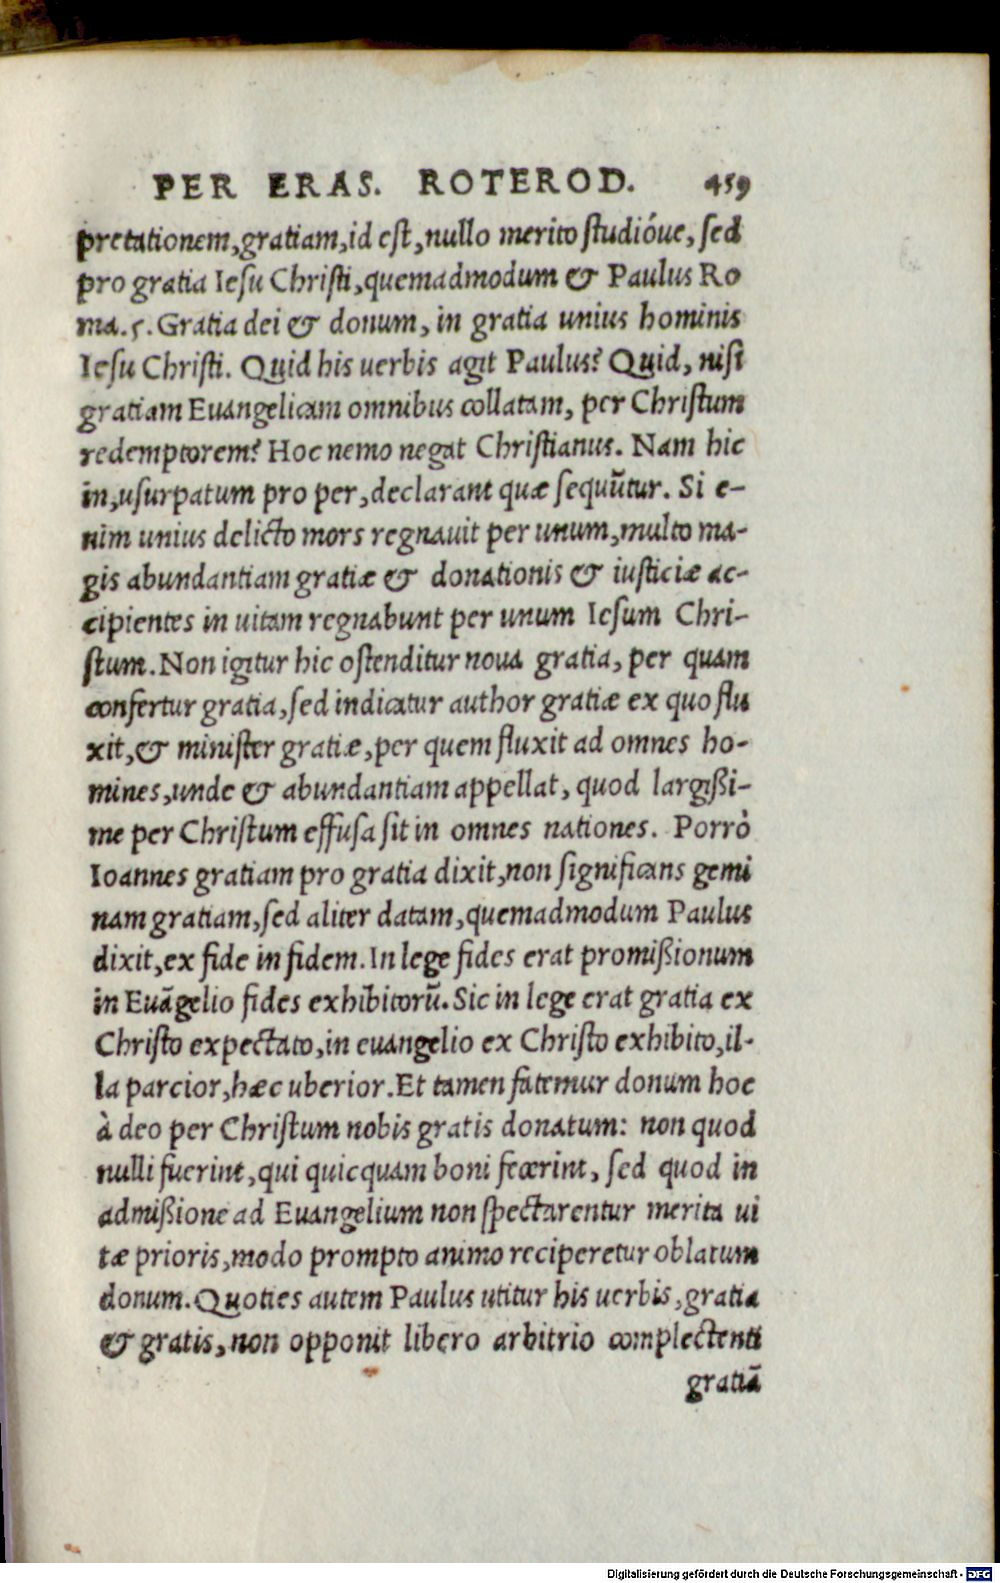 PER ERAS. ROTEROD. 459
pretationem,gratiam,id est,nullo merito studióue, sed
pro gratia Iesu Christi,quemadmodum & Paulus Ro
ma.5. Gratia dei & donum, in gratia unius hominis
Iesu Christi. Quid his uerbis agit Paulus? Quid, nisi
gratiam Euangelicam omnibus collatam, per Christum
redemptorem? Hoc nemo negat Christianus. Nam hic
in,usurpatum pro per,declarant quæ sequũtur. Si e-
nim unius delicto mors regnauit per unum,multo ma-
gis abundantiam gratiæ & donationis & iusticiæ ac-
cipientes in uitam regnabunt per unum Iesum Chri-
stum. Non igitur hic ostenditur noua gratia, per quam
confertur gratia,sed indicatur author gratiæ ex quo flu
xit,& minister gratiæ,per quem fluxit ad omnes ho-
mines,unde & abundantiam appellat, quod largißi-
me per Christum effusa sit in omnes nationes. Porrò
Ioannes gratiam pro gratia dixit,non significans gemi
nam gratiam,sed aliter datam,quemadmodum Paulus
dixit,ex fide in fidem. In lege fides erat promißionum
in Euãgelio fides exhibitorũ. Sic in lege erat gratia ex
Christo expectato,in euangelio ex Christo exhibito,il-
la parcior,hæc uberior. Et tamen fatemur donum hoc
à deo per Christum nobis gratis donatum: non quod
nulli fuerint,qui quicquam boni fecerint, sed quod in
admißione ad Euangelium non spectarentur merita ui
tæ prioris,modo prompto animo reciperetur oblatum
donum. Quoties autem Paulus utitur his uerbis,gratia
& gratis, non opponit libero arbitrio complectenti
gratiã
Digitalisierung gefördert durch die Deutsche Forschungsgemeinschaft - DFG